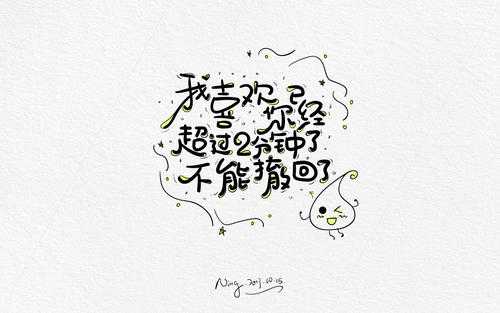 我喜欢你已经
超过2分钟了
不能撤回了
Ning